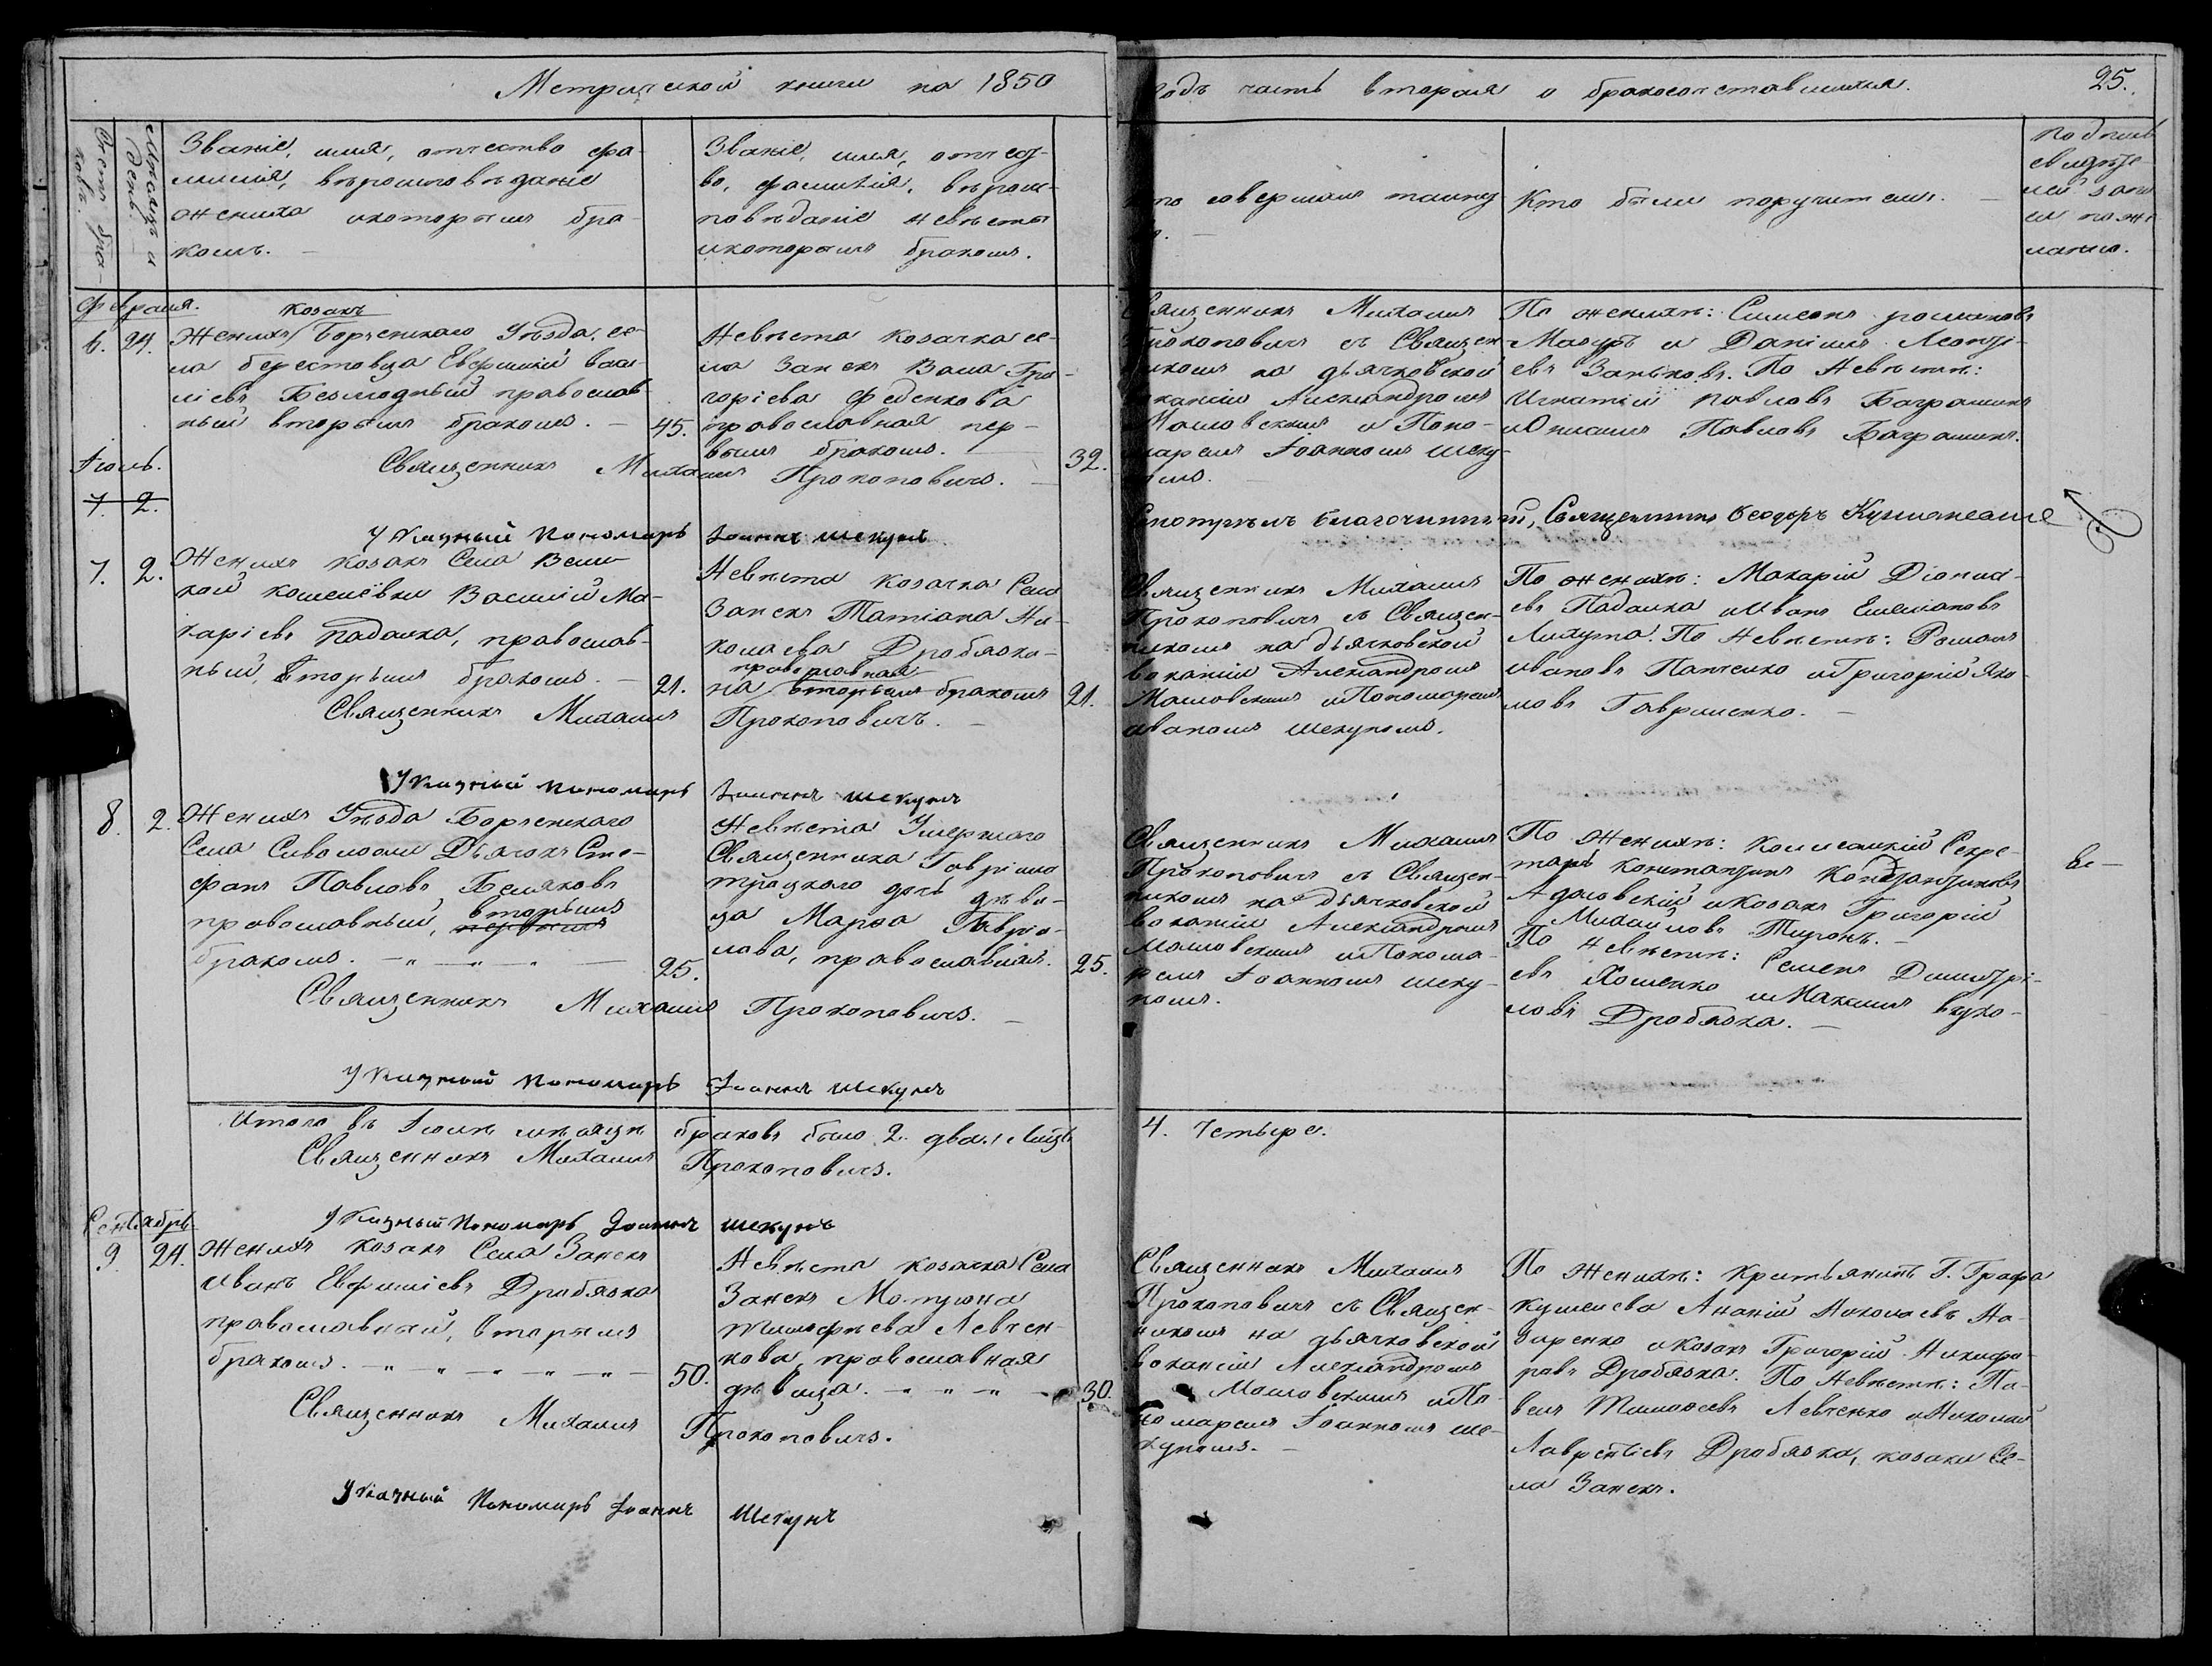 Метрической книги на 1850
годъ часть вторая о бракосочетавшихся.
25.
Счетъ бра-
ковъ.
Мѣсяцъ и
день.
Званіе, имя, отчество фа-
милія, вѣроисповѣданіе
жениха икоторымъ бра-
комъ. —
Званіе, имя, отчест-
во, фамилія, вѣроис-
повѣданіе невѣсты
икоторымъ бракомъ.
Кто совершалъ таинст
во. —
Кто были поручители. —
подпись
свидѣте-
лей запи
си по же
ланію.
Февраля.
козакъ
6. 24.
Женихъ Борзенскаго Уѣзда, се-
ла берестовца Евфимій васи-
ліевъ Безмодный православ-
ный вторымъ бракомъ. —
45.
Невѣста козачка се-
ла Занекъ Васа Гри-
горіева Феденкова
православная пер-
вымъ бракомъ. —
32.
Священникъ Михаилъ
Прокоповичъ съ Священ-
никомъ на дьячковской
вакансіи Александромъ
Мошовскимъ и Поно-
маремъ Іоанномъ шеку-
номъ.
По женихѣ: Симеонъ романовъ
Мазуръ и Даніилъ Леонті-
евъ Заньковъ. По Невѣстѣ:
Игнатій павловъ Баграшинъ
иОнисимъ Павловъ Баграшинъ.
Священникъ Михаилъ Прокоповичъ. —
Іюль.
7. 2.
Указный Пономарь Іоаннъ шекунъ
Смотрѣлъ благочинный, Священникъ Ѳеодоръ
7. 2.
Женихъ козакъ Села Вели-
кой кошелёвки Василій Ма-
каріевъ Падалка, православ-
ный, вторымъ бракомъ. —
21.
Невѣста козачка Села
Занекъ Татіана Ни-
колаева Дробязки-
православная
на вторымъ бракомъ
21.
Священникъ Михаилъ
Прокоповичъ съ Священ-
никомъ на дьячковской
вакансіи Александромъ
Мошовскимъ иПономаремъ
иваномъ шекуномъ.
По женихѣ: Макарій Діониси-
евъ Падалка иИванъ Емеліановъ
. По Невѣстѣ: Романъ
ивановъ Панченко иГригорій Яко-
мовъ Гавриленко. —
Священникъ Михаилъ Прокоповичъ. —
Указный пономарь Іоаннъ шекунъ
8. 2.
Женихъ Уѣзда Борзенскаго
Села Сиволожи Дьячокъ Сте-
фанъ Павловъ Беляковъ
православный, вторымъ
первымъ
бракомъ. — „ — „ —
25.
Невѣста Умершаго
Священника Гавріила
троцкаго дочь дѣви-
ца Марѳа Гавріи-
лова, православная.
25.
Священникъ Михаилъ
Прокоповичъ съ Священ-
никомъ на дьячковской
вакансіи Александромъ
Мошовскимъ иПонома-
ремъ Іоанномъ шеку-
номъ.
По Женихѣ: Коллежскій Секре-
тарь константинъ Константиновъ
иКозакъ Григорій
Михайловъ Тиронъ. —
По Невѣстѣ: Семенъ Димитрі-
евъ Хоменко иМаксимъ вуко-
ловъ Дробязка. —
Священникъ Михаилъ Прокоповичъ. —
Указный пономарь Іоаннъ шекунъ
Итого въ Іюлѣ мѣсяцѣ браковъ было 2. два. Лицъ 4. Четыре.
Священникъ Михаилъ Прокоповичъ.
Указный Пономарь Іоаннъ шекунъ
Сентябрь
9. 24.
Женихъ козакъ Села Занекъ
Иванъ Евфиміевъ Дробязка
православный, вторымъ
бракомъ. — „ — „ — „ —
50.
Невѣста козачка Села
Занекъ Мотрона
Тимофѣева Левчен-
кова, православная
дѣвица. — „ — „ —
30.
Священникъ Михаилъ
Прокоповичъ съ Священ-
никомъ на дьячковской
вакансіи Александромъ
Мошовскимъ иПо-
номаремъ Іоанномъ ше-
куномъ. —
По Женихѣ: Крестьянинъ Г. Графа
кушелева Ананій Николаевъ На-
заренко иКозакъ Григорій Никифо-
ровъ Дробязка. По Невѣстѣ: Па-
велъ Тимоѳеевъ Левченко иНиколай
Лаврентіевъ Дробязка, козаки Се-
ла Занекъ.
Священникъ Михаилъ Прокоповичъ.
Указный Пономарь Іоаннъ Шекунъ